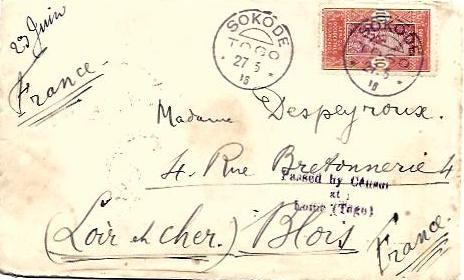 23 Juin
France
SOKODÉ
TOGO
27-5
16
SOKODÉ
TOGO
27-5
16
Madame Despeyroux.
4. Rue Bretonnerie 4
Passed by Censor
at
Lome (Togo)
(Loir et cher.) Blois
France